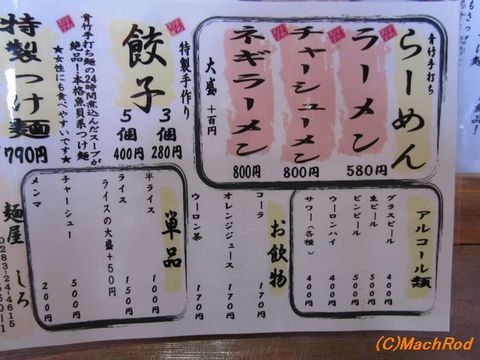 青竹手打ち
らーめん
ラーメン 580円
チャーシューメン 800円
ネギラーメン 800円
大盛 +百円
特製手作り
餃子
3個 280円
5個 400円
青竹手打ち麺の24時間煮込んだスープが
絶品!本格魚貝系つけ麺
★女性にも食べやすいです★
特製つけ麺 790円
アルコール類
グラスビール 400
生ビール 500
ビンビール 500
ウーロンハイ 400
サワー(各種) 400
お飲物
コーラ 170円
オレンジジュース 170円
ウーロン茶 170円
単品
半ライス 100円
ライス 150円
ライスの大盛 +50円
チャーシュー 500円
メンマ 200円
麺屋 しろ
0283-24-4615
(C)MachRod